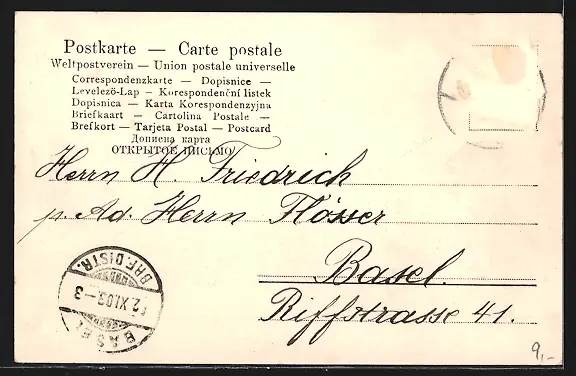 Postkarte — Carte postale
Weltpostverein — Union postale universelle
Correspondenzkarte — Dopisnice —
Levelező-Lap — Korespondenční listek
Dopisnica — Karta Korespondenzyjna
Briefkaart — Cartolina Postale —
Brefkort — Tarjeta Postal — Postcard
Дописна карта
ОТКРЫТОЕ ПИСЬМО
Herrn H. Friedrich
p. Ad. Herrn Flösser
Basel.
Riffstrasse 41.
BRF. DISTR.
12.XI.03.–3
BASEL
9,-